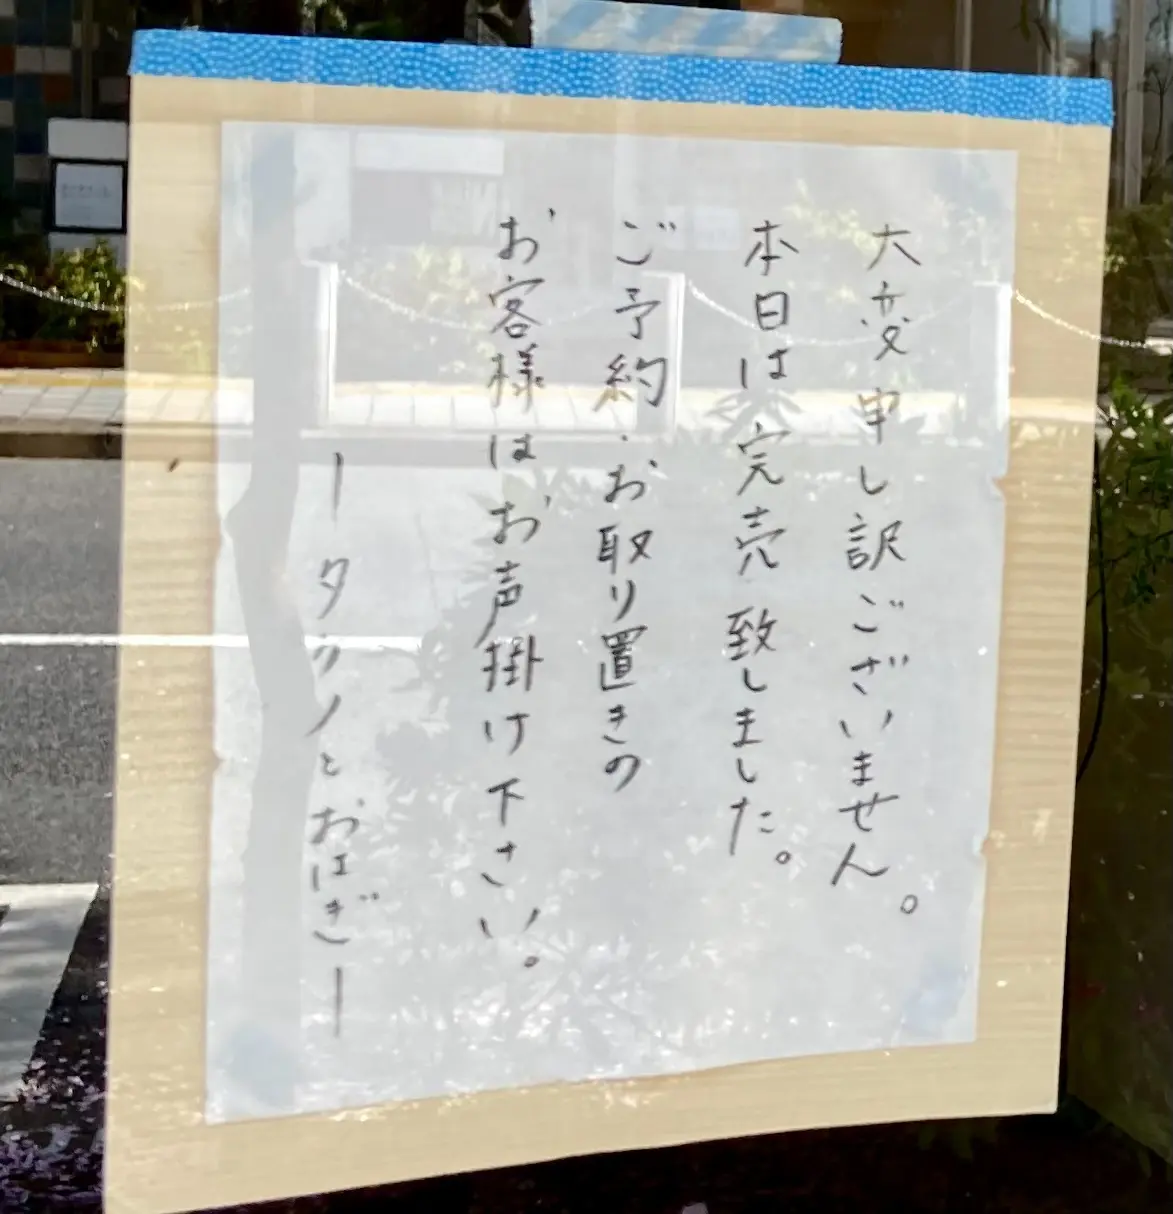 大変申し訳ございません。
本日は完売致しました。
ご予約・お取り置きの
お客様はお声掛け下さい。
ータケノとおはぎー